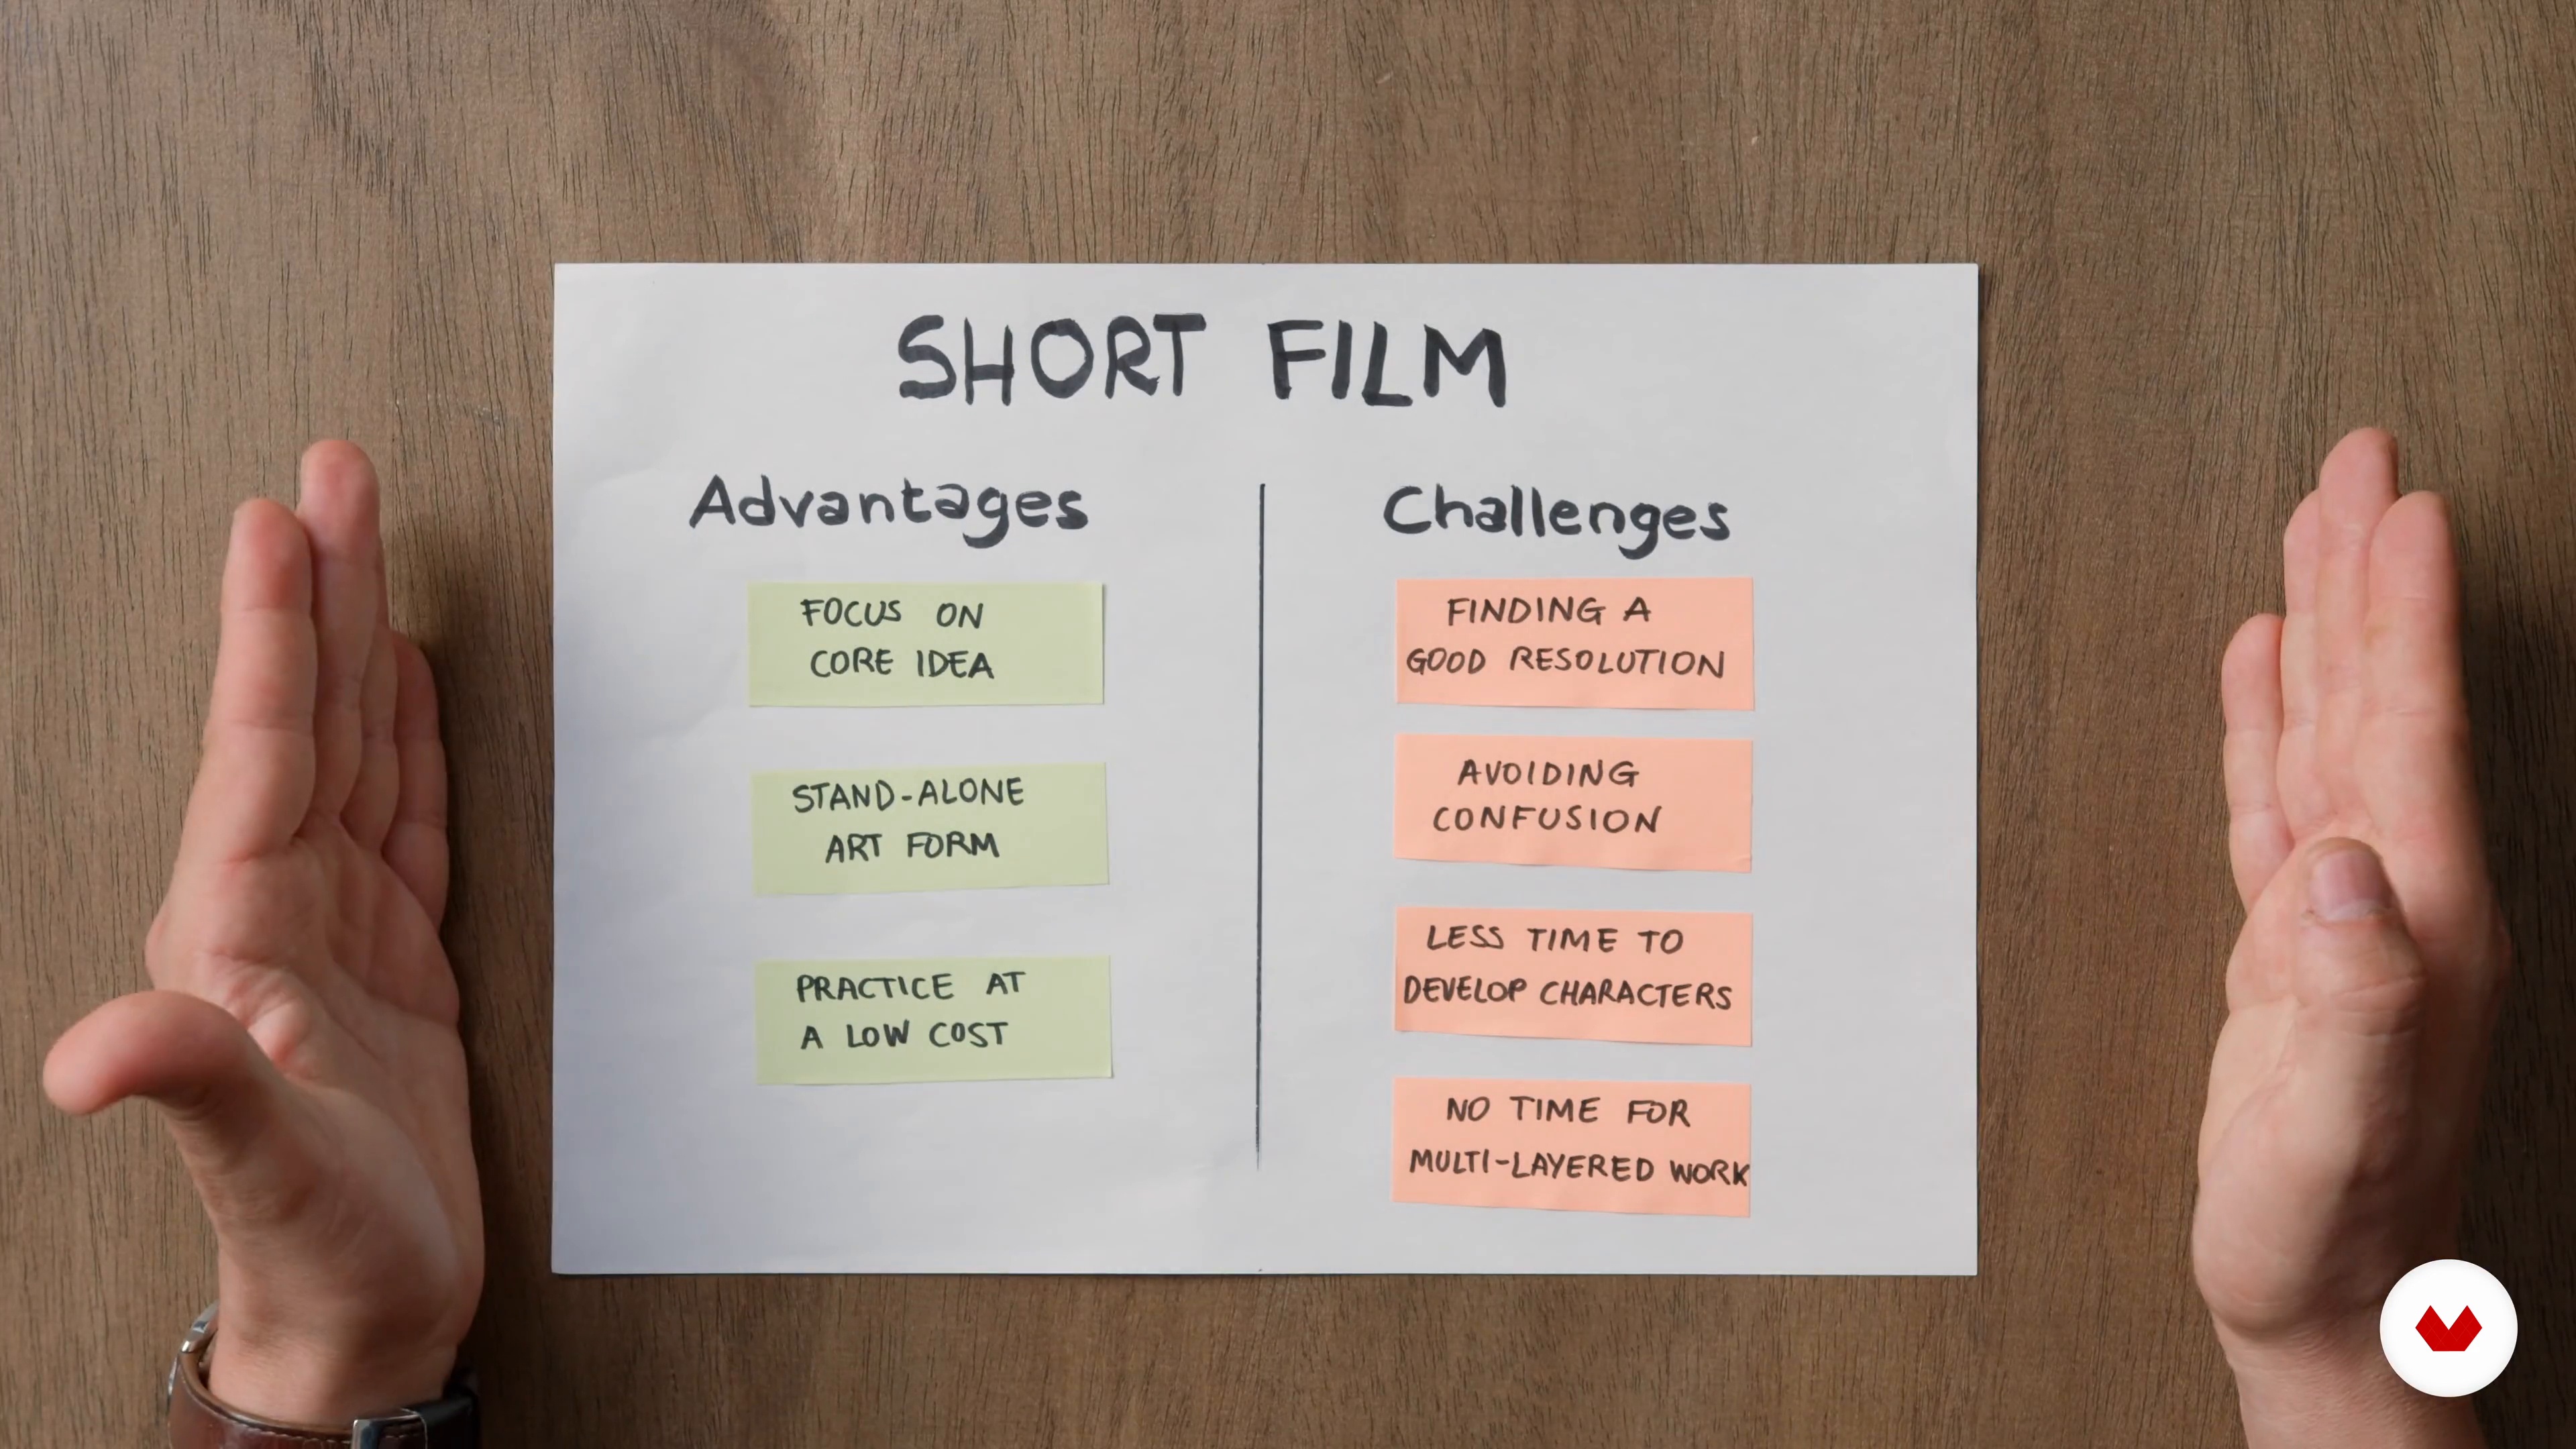 SHORT FILM
Advantages
FOCUS ON
CORE IDEA
STAND-ALONE
ART FORM
PRACTICE AT
A LOW COST
Challenges
FINDING A
GOOD RESOLUTION
AVOIDING
CONFUSION
LESS TIME TO
DEVELOP CHARACTERS
NO TIME FOR
MULTI-LAYERED WORK